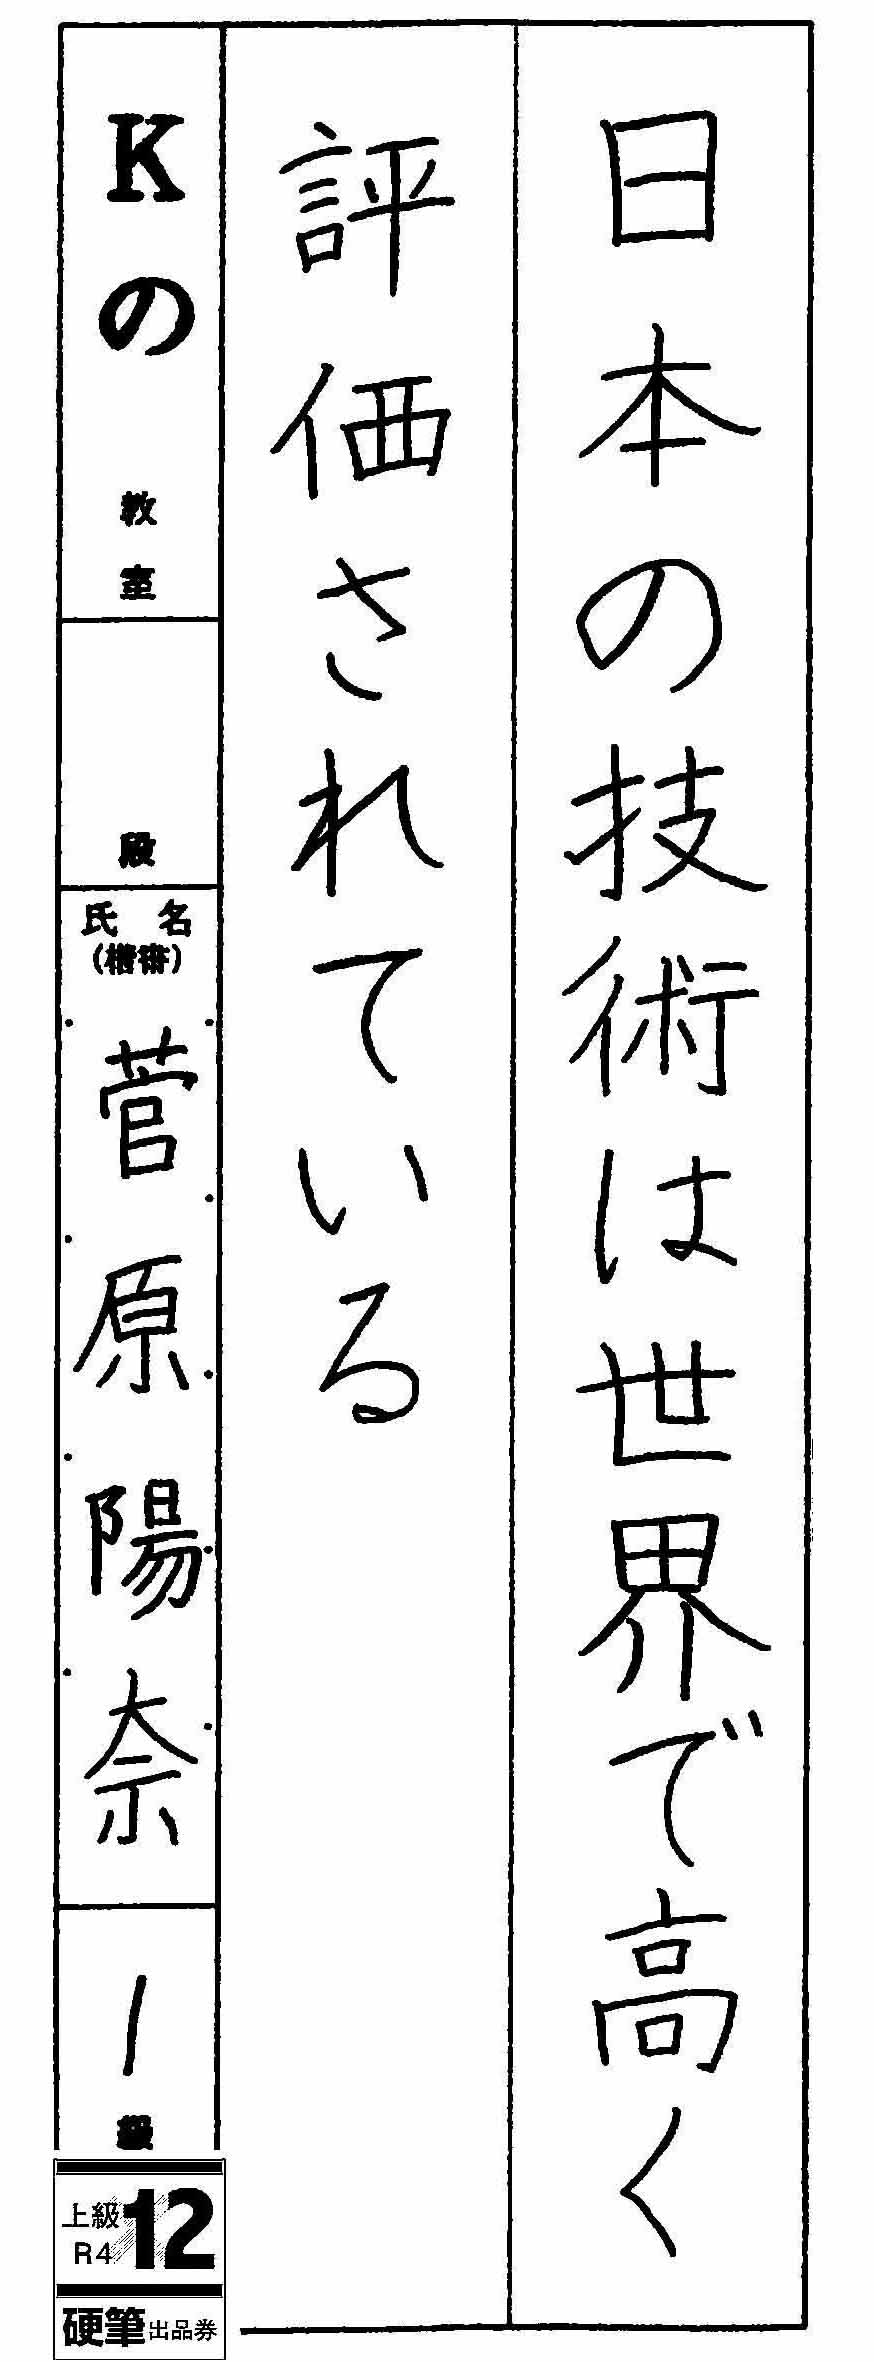 日本の技術は世界で高く
評価されている
Kの教室
段
氏名
(楷書)
菅原陽奈
1級
上級
R4
12
硬筆出品券